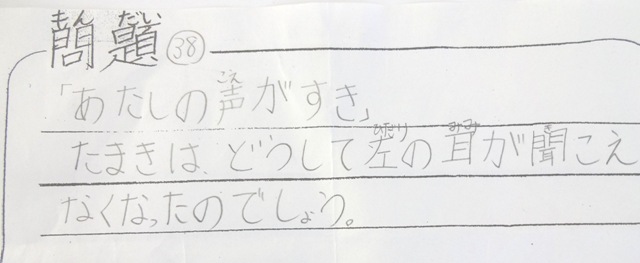 問題 38
「あたしの声がすき」
たまきは、どうして左の耳が聞こえ
なくなったのでしょう。